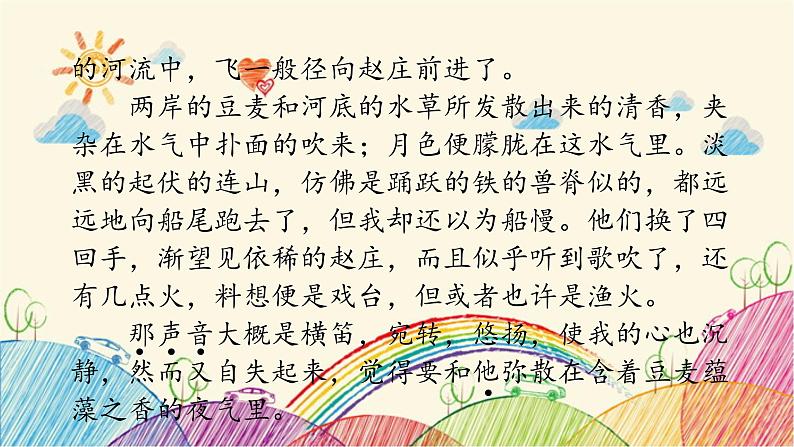 的河流中，飞一般径向赵庄前进了。
两岸的豆麦和河底的水草所发散出来的清香，夹
杂在水气中扑面的吹来；月色便朦胧在这水气里。淡
黑的起伏的连山，仿佛是踊跃的铁的兽脊似的，都远
远地向船尾跑去了，但我却还以为船慢。他们换了四
回手，渐望见依稀的赵庄，而且似乎听到歌吹了，还
有几点火，料想便是戏台，但或者也许是渔火。
那声音大概是横笛，宛转，悠扬，使我的心也沉
静，然而又自失起来，觉得要和他弥散在含着豆麦蕴
藻之香的夜气里。